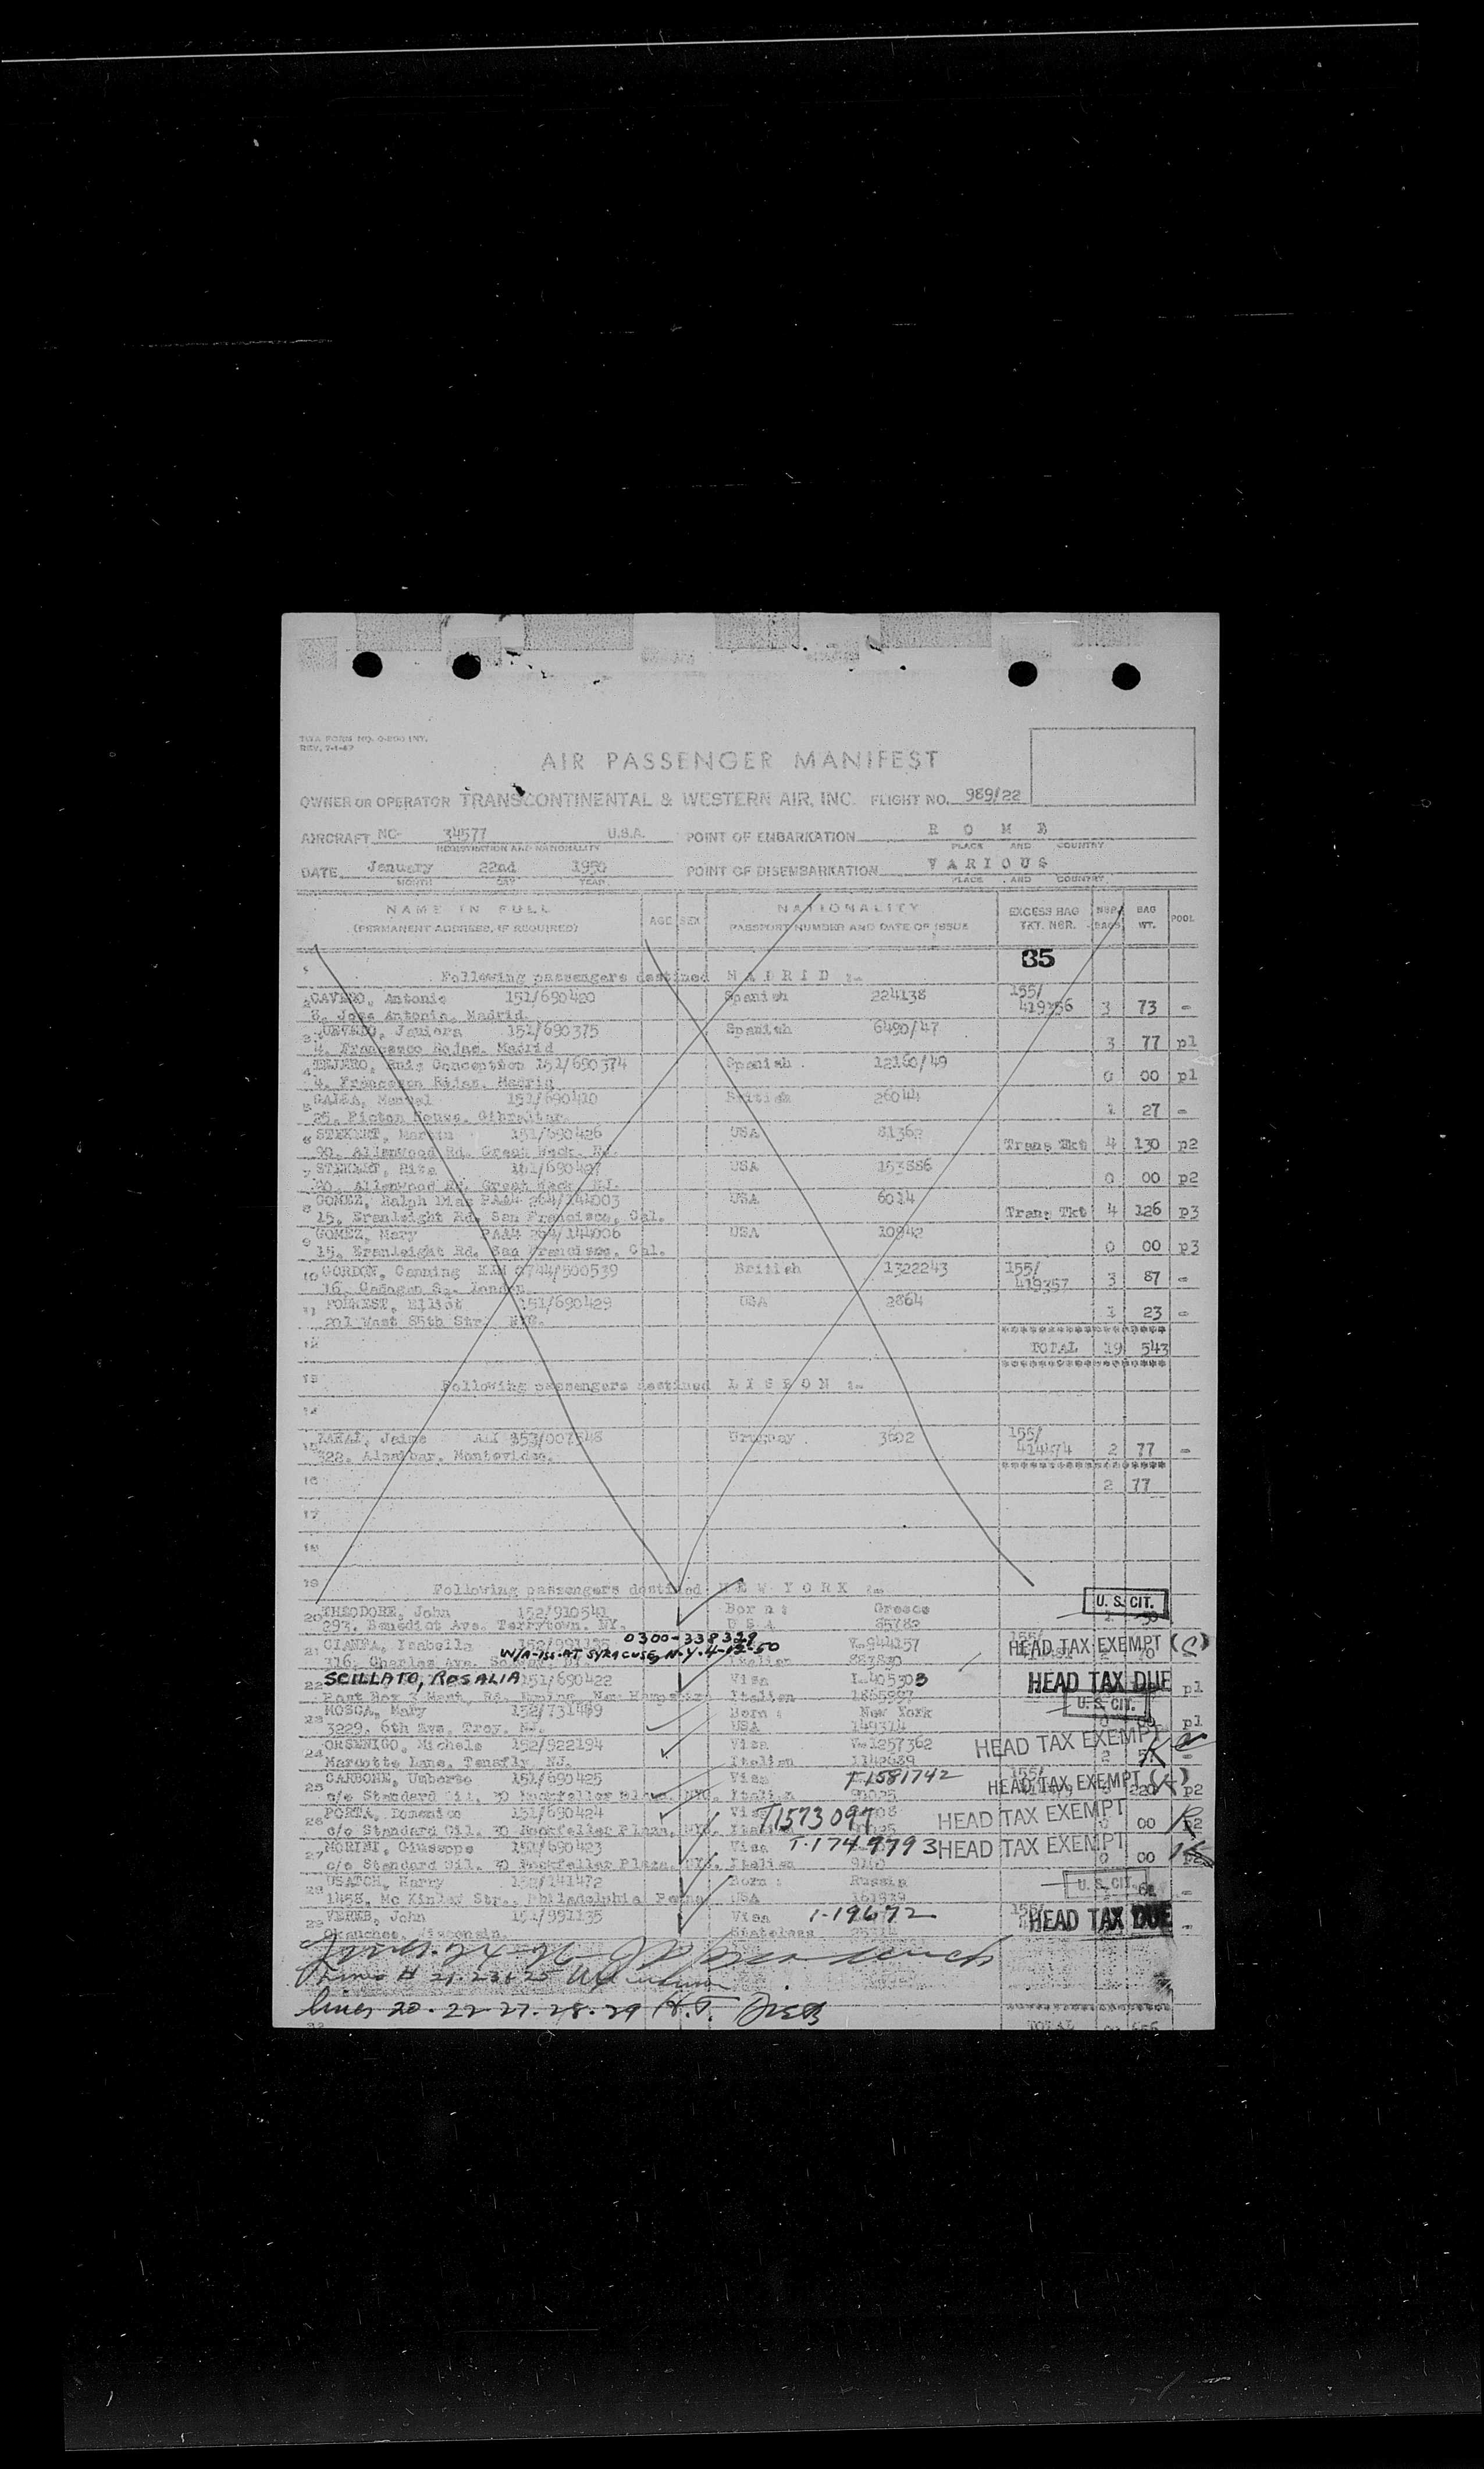 TWA FORM NO. O-200 INT.
REV. 7-1-47
AIR PASSENGER MANIFEST
OWNER OR OPERATOR TRANSCONTINENTAL & WESTERN AIR, INC. FLIGHT NO. 989/22
AIRCRAFT NC- 34577 U.S.A. POINT OF EMBARKATION R O M E
REGISTRATION AND NATIONALITY PLACE AND COUNTRY
DATE January 22nd 1950 POINT OF DISEMBARKATION V A R I O U S
MONTH DAY YEAR PLACE AND COUNTRY
NAME IN FULL AGE SEX NATIONALITY EXCESS BAG NBR. BAG POOL
(PERMANENT ADDRESS, IF REQUIRED) PASSPORT NUMBER AND DATE OF ISSUE TKT. NBR. BAGS WT.
35
Following passengers destined M A D R I D :-
2 CAVERO, Antonio 151/690420 Spanish 224138 155/
8, Jose Antonio, Madrid 419356 3 73 -
3 151/690375 Spanish 6490/47
4, Francesco Rojas, Madrid 3 77 p1
4 TEJERO, Ruis Conception 151/690374 Spanish 12160/49
4, Francesco Rojas, Madrid 0 00 p1
5 151/690410 British 26044
25, Picton House, Gibraltar 1 27 -
6 STEKERT, Martin 151/690426 USA 81362
90, Allenwood Rd. Great Neck, NJ. Trans Tkt 4 130 p2
7 STEKERT, Rita 151/690427 USA 153886
90, Allenwood Rd. Great Neck NJ. 0 00 p2
8 GOMEZ, Ralph Dias PAA4 264/144003 USA 6014
15, Eranleight Rd. San Francisco, Cal. Trans Tkt 4 126 p3
9 GOMEZ, Mary PAA4 264/144006 USA 10942
15, Eranleight Rd. San Francisco, Cal. 0 00 p3
10 GORDON, Canning KLM 0744/500539 British 1322243 155/
16, Cadogan Sq. London 419357 3 87 -
11 FORREST, Elliot 151/690429 USA 2864
201 West 85th Str. NYC. 1 23 -
12 TOTAL 19 543
13 Following passengers destined L I S B O N :-
14
15 Jaime 353/007548 Uruguay 3602 155/
322, Montevideo. 2 77 -
16 2 77
17
18
19 Following passengers destined N E W Y O R K :-
20 THEODORE, John 152/910541 Born : Greece U. S. CIT.
293, Benedict Ave. Terrytown. NY. U S A 85782
21 CIANFA, Isabella 152/991135 0300-338329 V-944157 HEAD TAX EXEMPT (S)
316, Charles Ave. W/A-ISS-AT SYRACUSE, N.Y. 4-12-50 Italian 883830
22 SCILLATO, ROSALIA 151/690422 Visa I-405303 HEAD TAX DUE p1
New Hampshire Italian 1865997
23 MOSCA, Mary 152/731459 Born : New York U. S. CIT.
3229, 6th Ave, Troy, NJ. USA 149314 0 00 p1
24 ORSENIGO, Michele 152/922194 Visa V-1257362 HEAD TAX EXEMPT
Marcotte Lane, Tenafly, NJ. Italian 1142639 2
25 CARBONE, Umberto 151/690425 Visa T-1581742 155/ HEAD TAX EXEMPT
c/o Standard Oil, 30 Rockfeller Plaza, NYC. Italian 220 p2
26 PORTA, Domenico 151/690424 Visa T1573097 HEAD TAX EXEMPT
c/o Standard Oil, 30 Rockfeller Plaza, NYC. Italian 0 00 p2
27 MORINI, Giuseppe 151/690423 Visa T-1749793 HEAD TAX EXEMPT
c/o Standard Oil, 30 Rockfeller Plaza, NYC. Italian 0 00 p2
28 USATCH, Harry 152/141472 Born : Russia U. S. CIT.
1458, Mc Kinley Str., Philadelphia Penna USA 161939
29 VEREB, John 151/991135 Visa I-19672 155/ HEAD TAX DUE
Okauchee, Wisconsin. Stateless
Lines # 21. 23 & 25
lines 20-22-27-28-29 H.T.
TOTAL